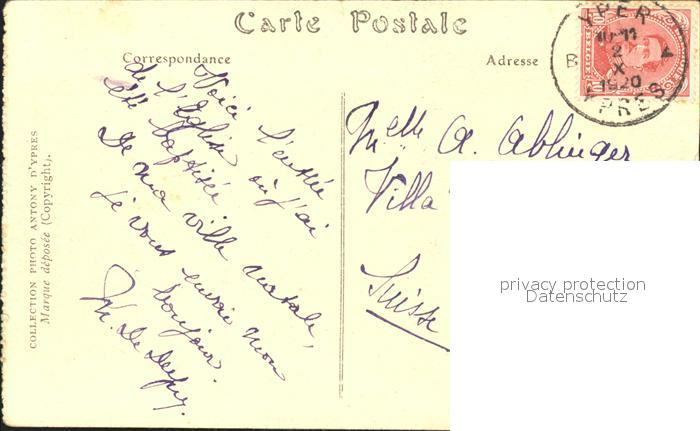 Carte Postale
Correspondance
Adresse
B
YPER
10-11
2
X
1920
YPRES
Voici l'entrée
de l'Eglise où j'ai
été baptisée
De ma ville natale,
je vous envoie mon
bonjour.
M. De
Melle A. Ablinger
Villa
Suisse
COLLECTION PHOTO ANTONY D'YPRES
Marque déposée (Copyright).
privacy protection
Datenschutz